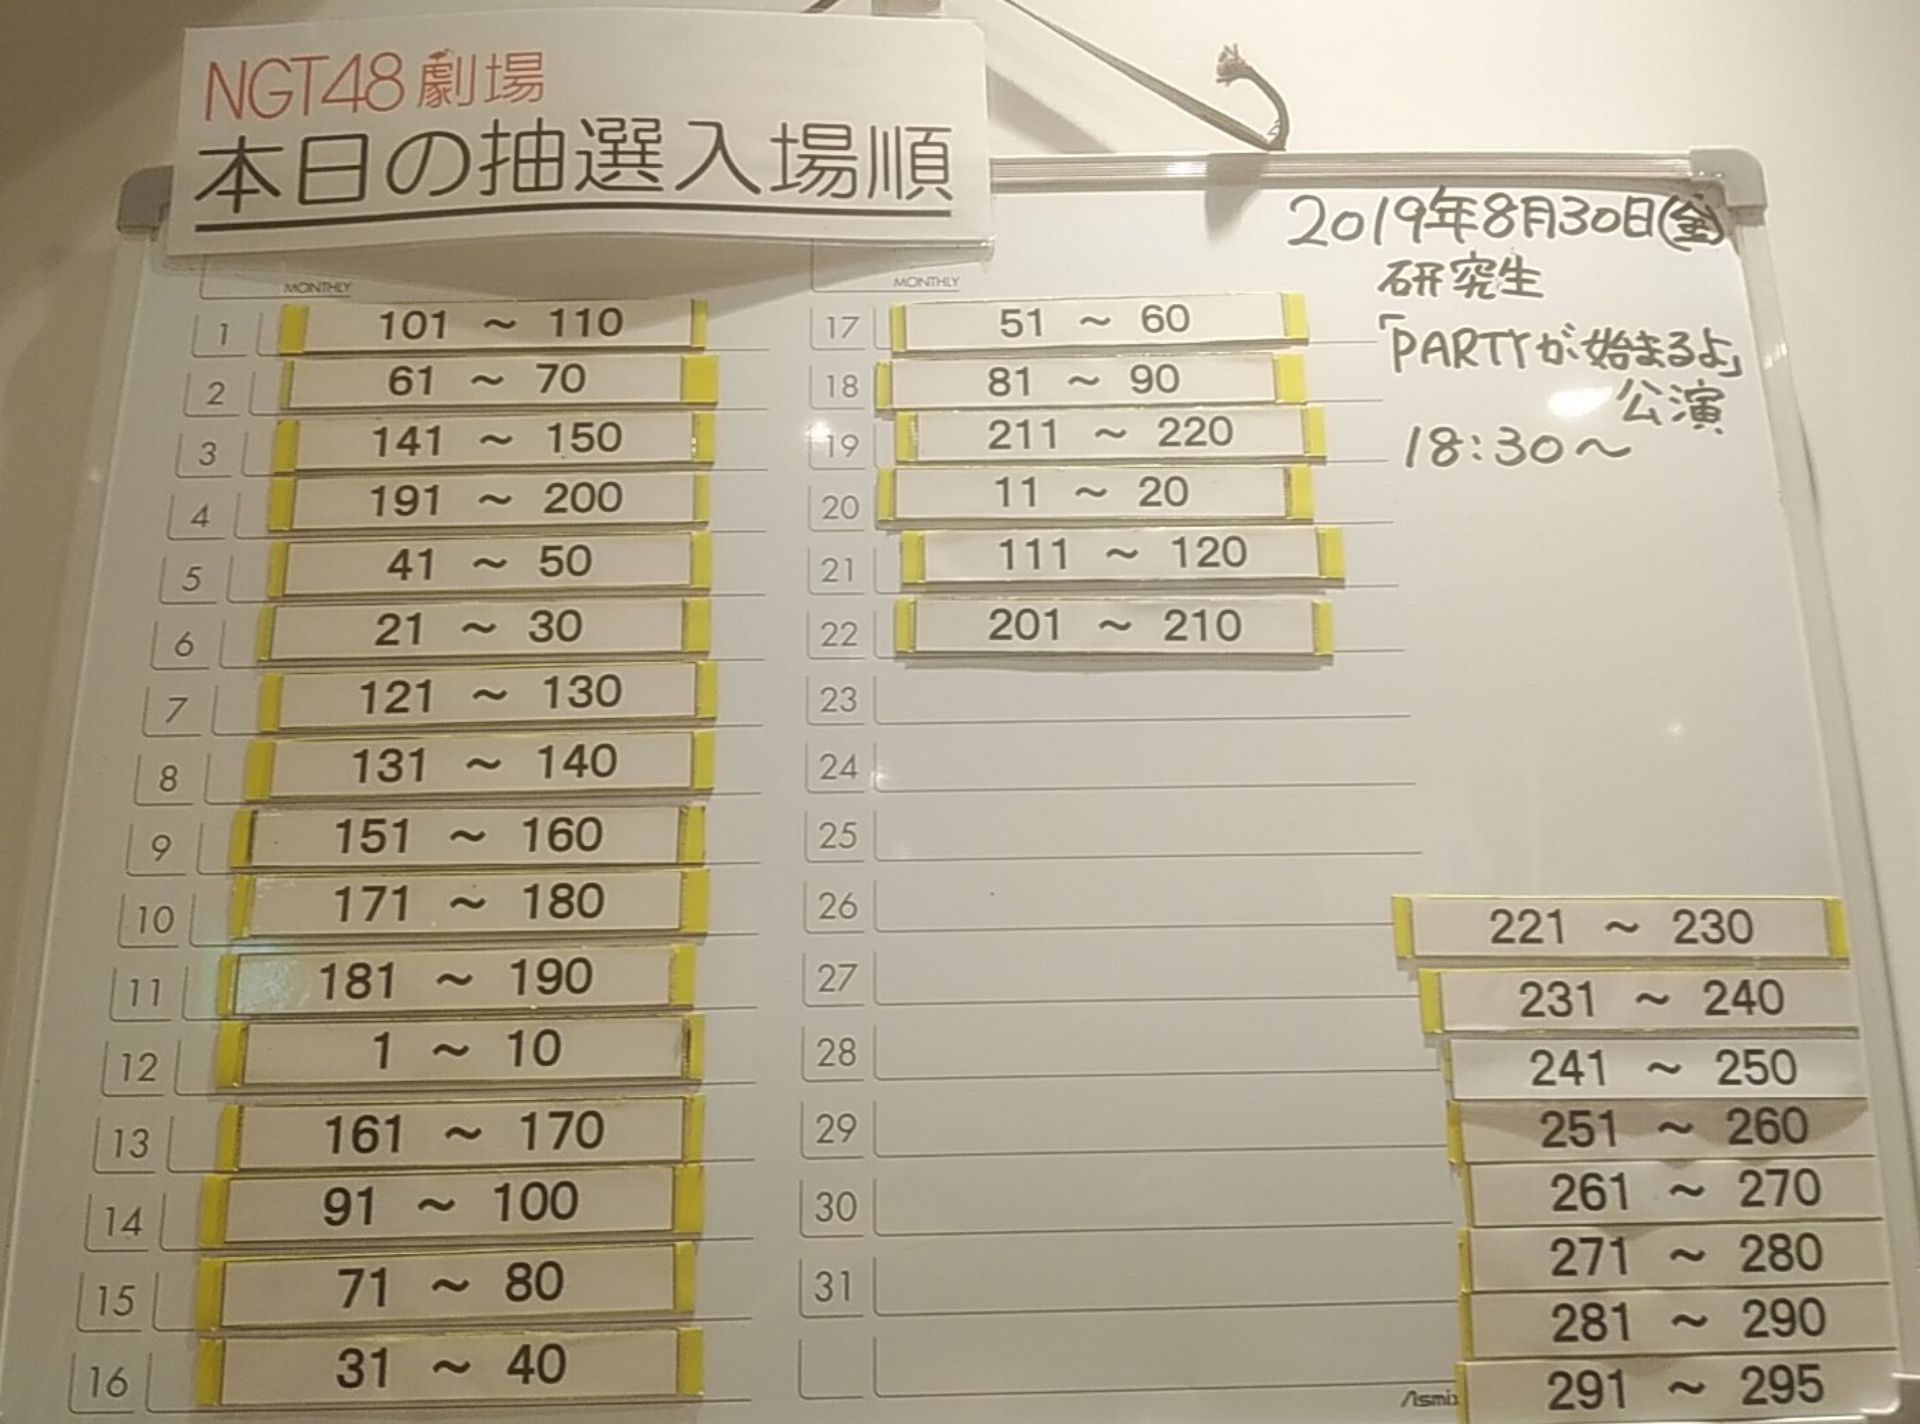 NGT48劇場
本日の抽選入場順
2019年8月30日(金)
研究生
「PARTYが始まるよ」
公演
18:30～
MONTHLY
1 101 ～ 110
2 61 ～ 70
3 141 ～ 150
4 191 ～ 200
5 41 ～ 50
6 21 ～ 30
7 121 ～ 130
8 131 ～ 140
9 151 ～ 160
10 171 ～ 180
11 181 ～ 190
12 1 ～ 10
13 161 ～ 170
14 91 ～ 100
15 71 ～ 80
16 31 ～ 40
MONTHLY
17 51 ～ 60
18 81 ～ 90
19 211 ～ 220
20 11 ～ 20
21 111 ～ 120
22 201 ～ 210
23
24
25
26
27
28
29
30
31
221 ～ 230
231 ～ 240
241 ～ 250
251 ～ 260
261 ～ 270
271 ～ 280
281 ～ 290
291 ～ 295
Asmix